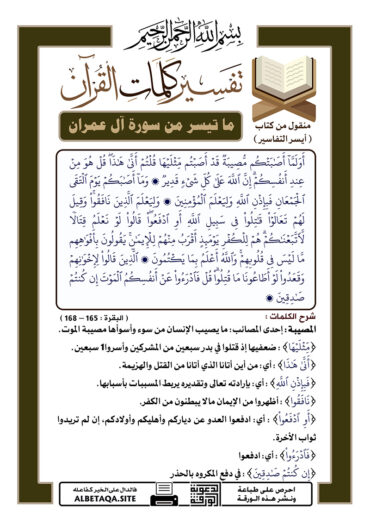 بسم الله الرحمن الرحيم
تفسير كلمات القرآن
ما تيسر من سورة آل عمران
منقول من كتاب
( أيسر التفاسير )
أَوَلَمَّآ أَصَٰبَتْكُم مُّصِيبَةٌ قَدْ أَصَبْتُم مِّثْلَيْهَا قُلْتُمْ أَنَّىٰ هَٰذَا ۖ قُلْ هُوَ مِنْ
عِندِ أَنفُسِكُمْ ۗ إِنَّ ٱللَّهَ عَلَىٰ كُلِّ شَىْءٍ قَدِيرٌ ۞ وَمَآ أَصَٰبَكُمْ يَوْمَ ٱلْتَقَى
ٱلْجَمْعَانِ فَبِإِذْنِ ٱللَّهِ وَلِيَعْلَمَ ٱلْمُؤْمِنِينَ ۞ وَلِيَعْلَمَ ٱلَّذِينَ نَافَقُوا۟ ۚ وَقِيلَ
لَهُمْ تَعَالَوْا۟ قَٰتِلُوا۟ فِى سَبِيلِ ٱللَّهِ أَوِ ٱدْفَعُوا۟ ۖ قَالُوا۟ لَوْ نَعْلَمُ قِتَالًا
لَّٱتَّبَعْنَٰكُمْ ۗ هُمْ لِلْكُفْرِ يَوْمَئِذٍ أَقْرَبُ مِنْهُمْ لِلْإِيمَٰنِ ۚ يَقُولُونَ بِأَفْوَٰهِهِم
مَّا لَيْسَ فِى قُلُوبِهِمْ ۗ وَٱللَّهُ أَعْلَمُ بِمَا يَكْتُمُونَ ۞ ٱلَّذِينَ قَالُوا۟ لِإِخْوَٰنِهِمْ
وَقَعَدُوا۟ لَوْ أَطَاعُونَا مَا قُتِلُوا۟ ۗ قُلْ فَٱدْرَءُوا۟ عَنْ أَنفُسِكُمُ ٱلْمَوْتَ إِن كُنتُمْ
صَٰدِقِينَ ۞
شرح الكلمات :
( البقرة : 165 – 168 )
المصيبة : إحدى المصائب: ما يصيب الإنسان من سوء وأسوأها مصيبة الموت.
﴿مِّثْلَيْهَا﴾ : ضعفيها إذ قتلوا في بدر سبعين من المشركين وأسروا سبعين.
﴿أَنَّىٰ هَٰذَا﴾ : أي: من أين أتانا الذي أتانا من القتل والهزيمة.
﴿فَبِإِذْنِ ٱللَّهِ﴾ : أي: بإرادته تعالى وتقديره بربط المسببات بأسبابها.
﴿نَافَقُوا۟﴾ : أظهروا من الإيمان مالا يبطنون من الكفر.
﴿أَوِ ٱدْفَعُوا۟﴾ : أي: ادفعوا العدو عن دياركم وأهليكم وأولادكم، إن لم تريدوا
ثواب الآخرة.
﴿فَٱدْرَءُوا۟﴾ : أي: ادفعوا
﴿إِن كُنتُمْ صَٰدِقِينَ﴾ : في دفع المكروه بالحذر
احرص على طباعة
ونشر هذه الورقة
الدعوية
الورقة
فالدال على الخير كفاعله
ALBETAQA.SITE